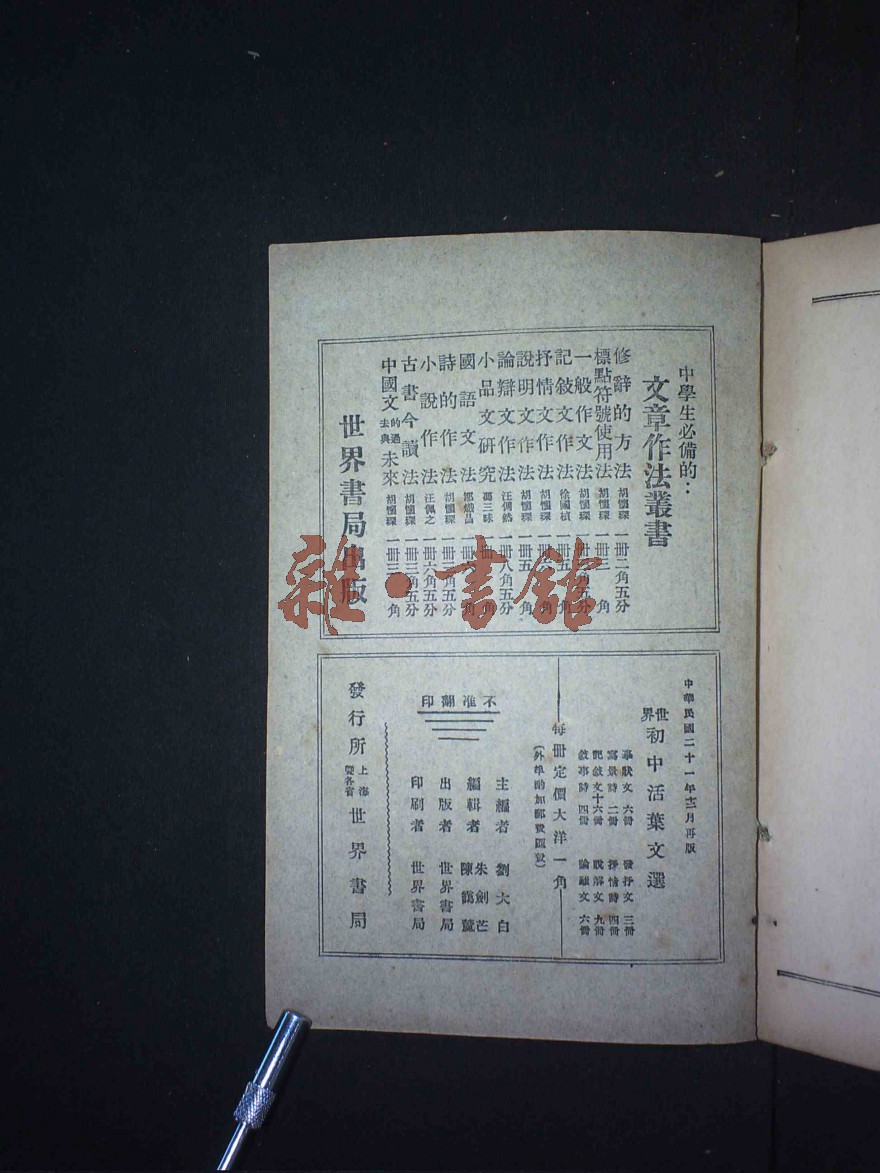 中學生必備的：
文章作法叢書
修辭的方法 胡懷琛 一冊二角五分
標點符號使用法 胡懷琛 一冊三角
一般作文法 胡懷琛 一冊 角五分
記敍文作法 徐國楨 一冊五角
抒情文作法 胡懷琛 一冊 角
說明文作法 胡懷琛 一冊五角
論辯文作法 汪倜然 一冊八角五分
小品文研究 馮三昧 一冊 角
國語文法 一冊 角
詩的作法 胡懷琛 一冊 角五分
小說作法 汪佩之 一冊六角五分
古書今讀法 胡懷琛 一冊三角五分
中國文的過去與未來 胡懷琛 一冊三角
世界書局出版
雜·書館
中華民國二十一年十二月再版
世界初中活葉文選
事狀文 六冊 發抒文 三冊
寫景詩 二冊 抒情詩 四冊
記敘文 十六冊 說解文 九冊
敘事詩 四冊 論議文 六冊
每冊定價大洋一角
(外埠酌加郵費匯費)
不准翻印
主編者 劉大白
編輯者 朱劍芒 陳靄麓
出版者 世界書局
印刷者 世界書局
發行所 上海暨各省 世界書局